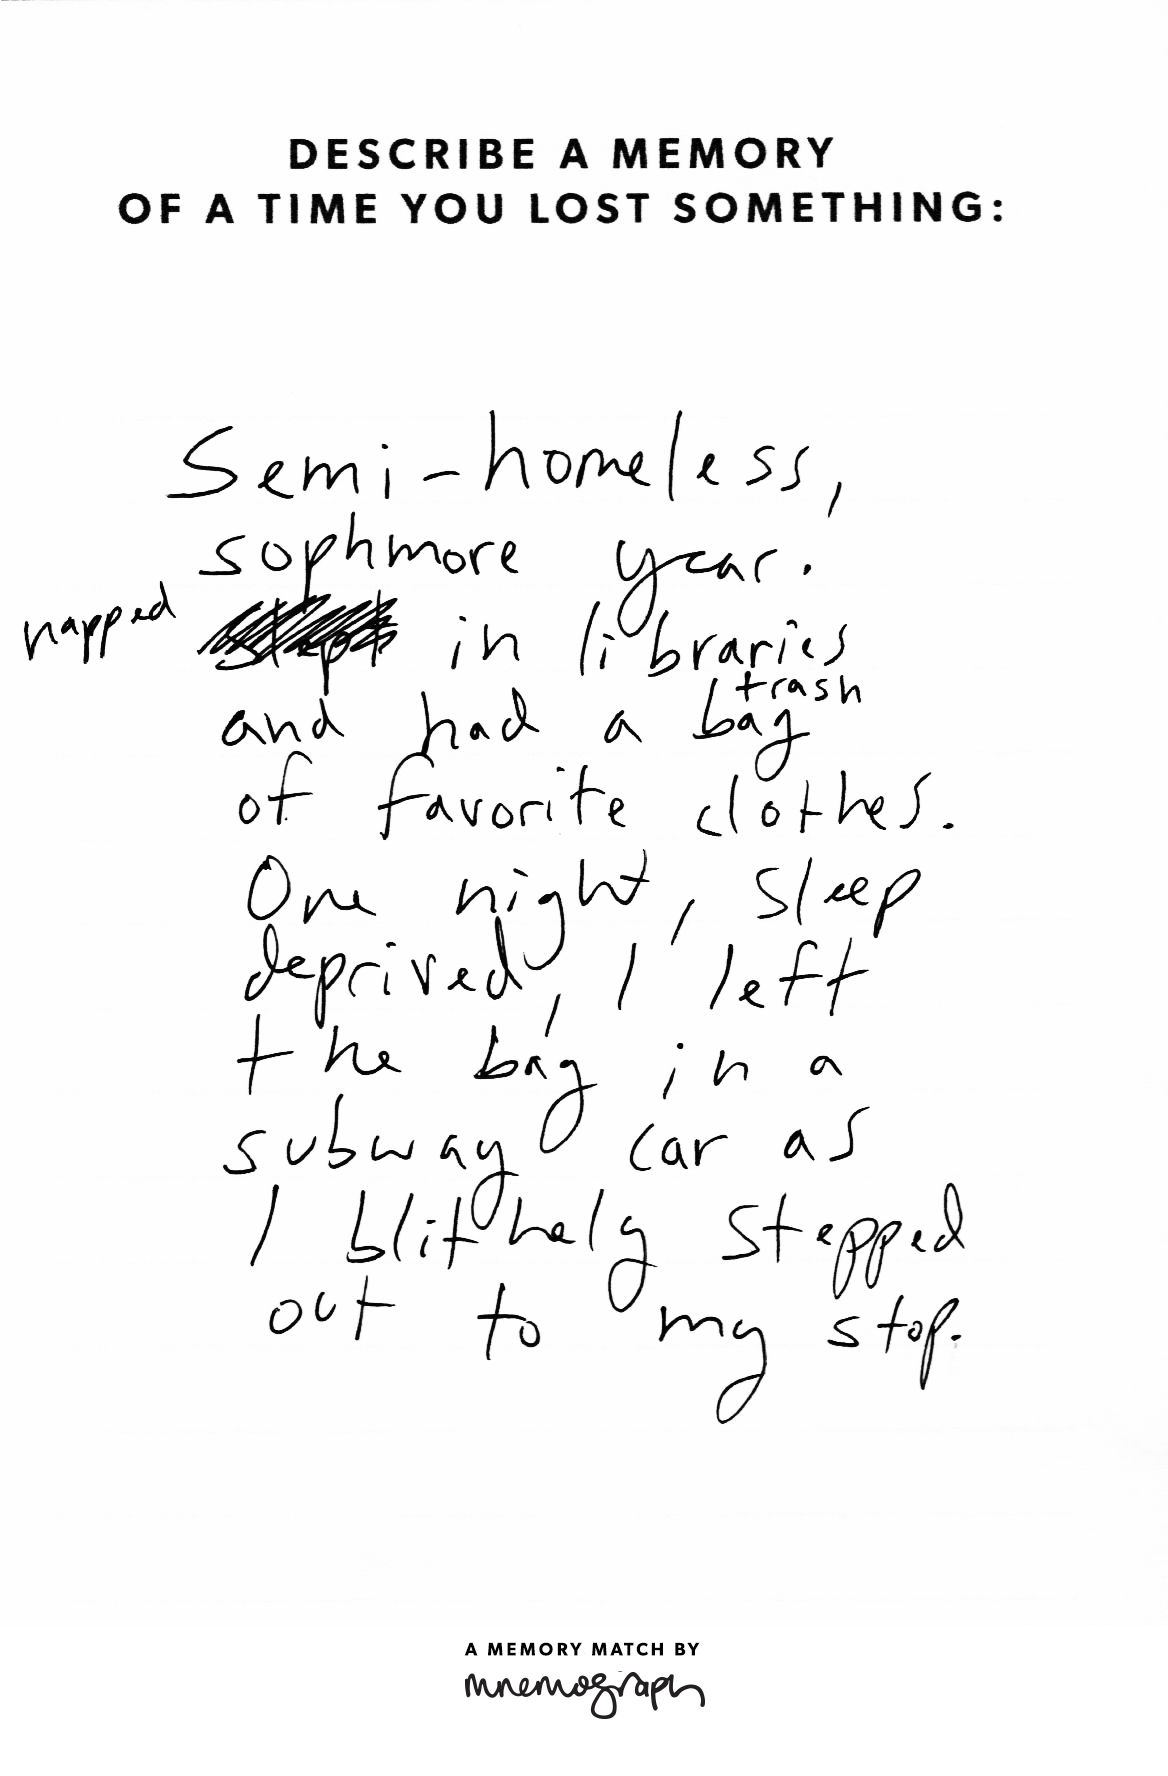 DESCRIBE A MEMORY
OF A TIME YOU LOST SOMETHING:
Semi-homeless,
sophmore year.
napped slept in libraries
trash
and had a bag
of favorite clothes.
One night, sleep
deprived, I left
the bag in a
subway car as
I blithely stepped
out to my stop.
A MEMORY MATCH BY
mnemograph